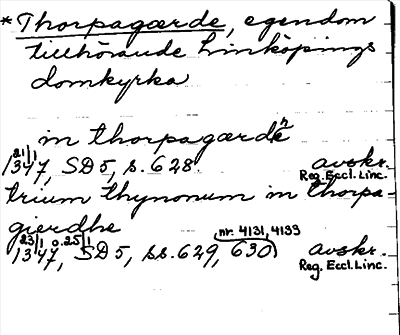 * Thorpagærde, egendom
tillhörande Linköpings
domkyrka
in thorpagærdhe
21/1 1347, SD 5, s. 628. avskr.
Reg. Eccl. Linc.
trium thynonum in thorpa-
gierdhe
nr. 4131, 4133
23/1 o. 25/1 1347, SD 5, ss. 629, 630) avskr.
Reg. Eccl. Linc.